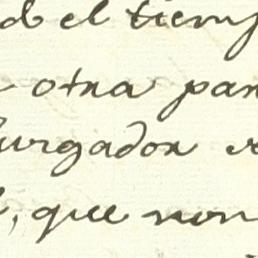 el tiemp
otra par
urgador
, que non